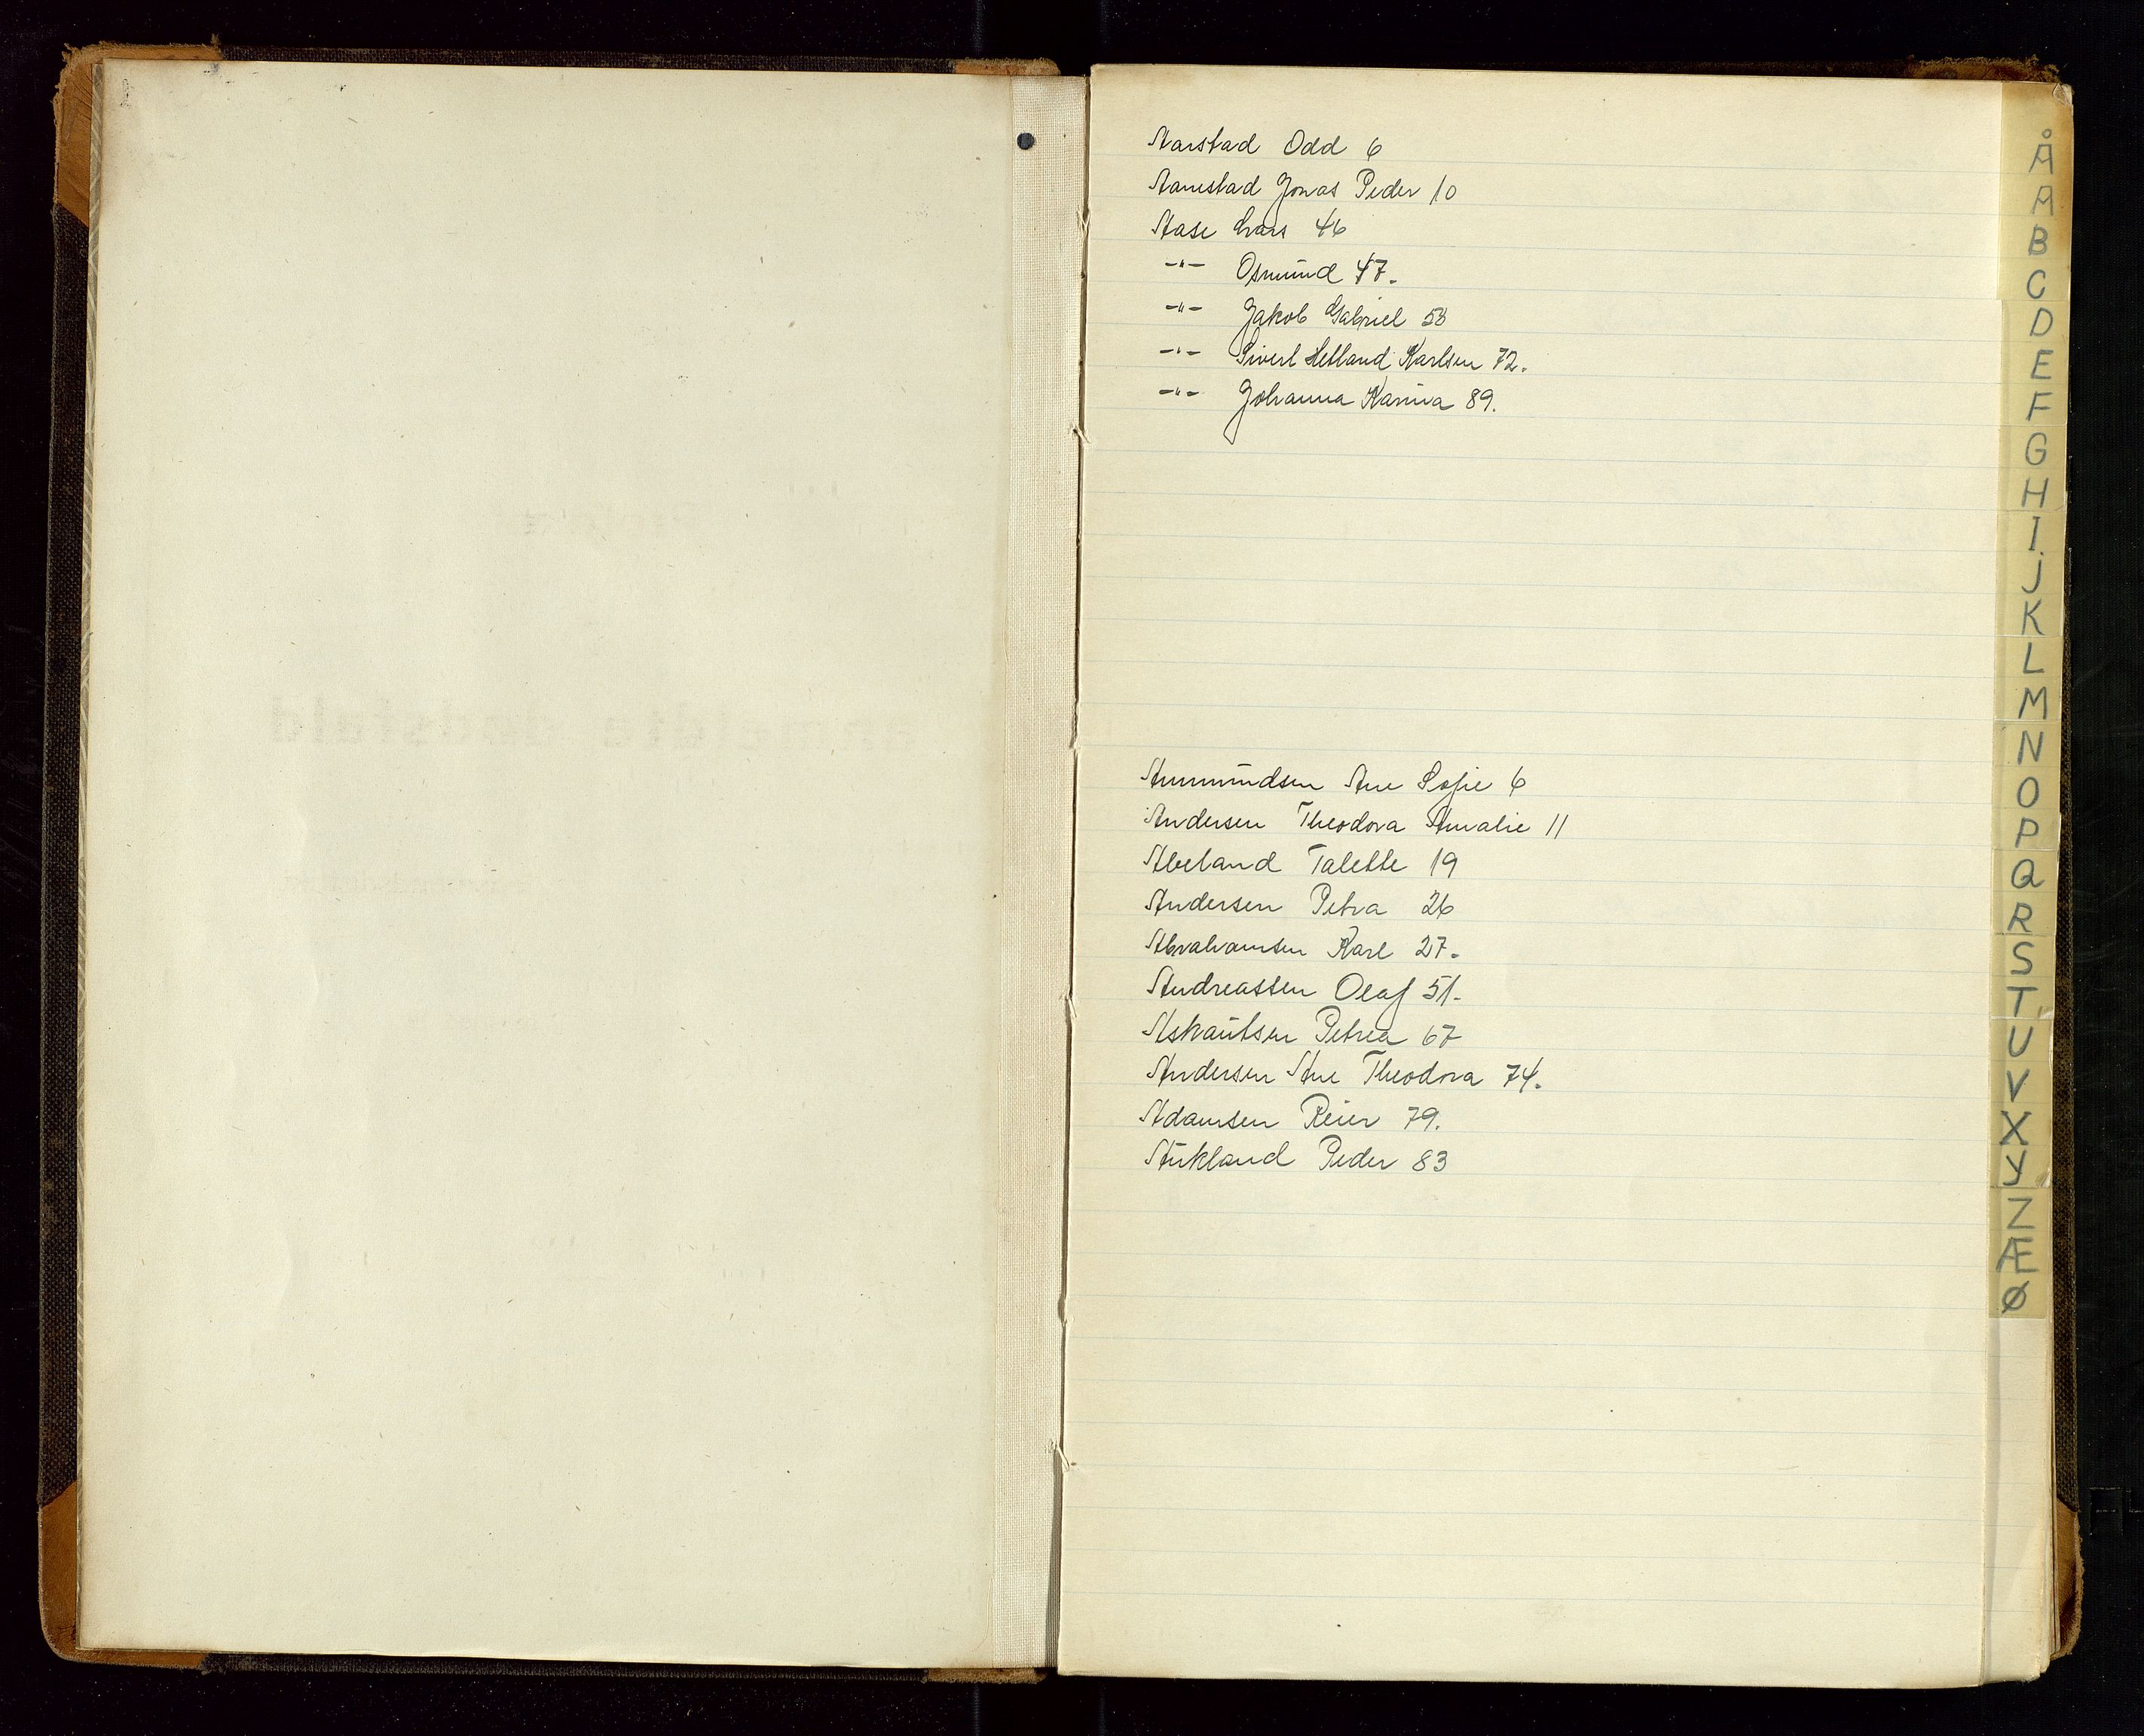 Aarstad Odd 6
Aarrestad Jonas Peder 10
Aase Lars 46
-"- Osmund 47.
-"- Jakob Gabriel 53
-"- Sivert Hetland Karlsen 72.
-"- Johanna Karina 89.
Ammundsen Ane Sofie 6
Andersen Theodora Amalie 11
Abeland Talette 19
Andersen Petra 26
Abrahamsen Karl 27.
Andreassen Olaf 51.
Askautsen Petrea 67
Andersen Ane Theodora 74.
Adamsen Reier 79.
Aukland Peder 83
Å
A
B
C
D
E
F
G
H
I
J
K
L
M
N
O
P
Q
R
S
T
U
V
X
Y
Z
Æ
Ø